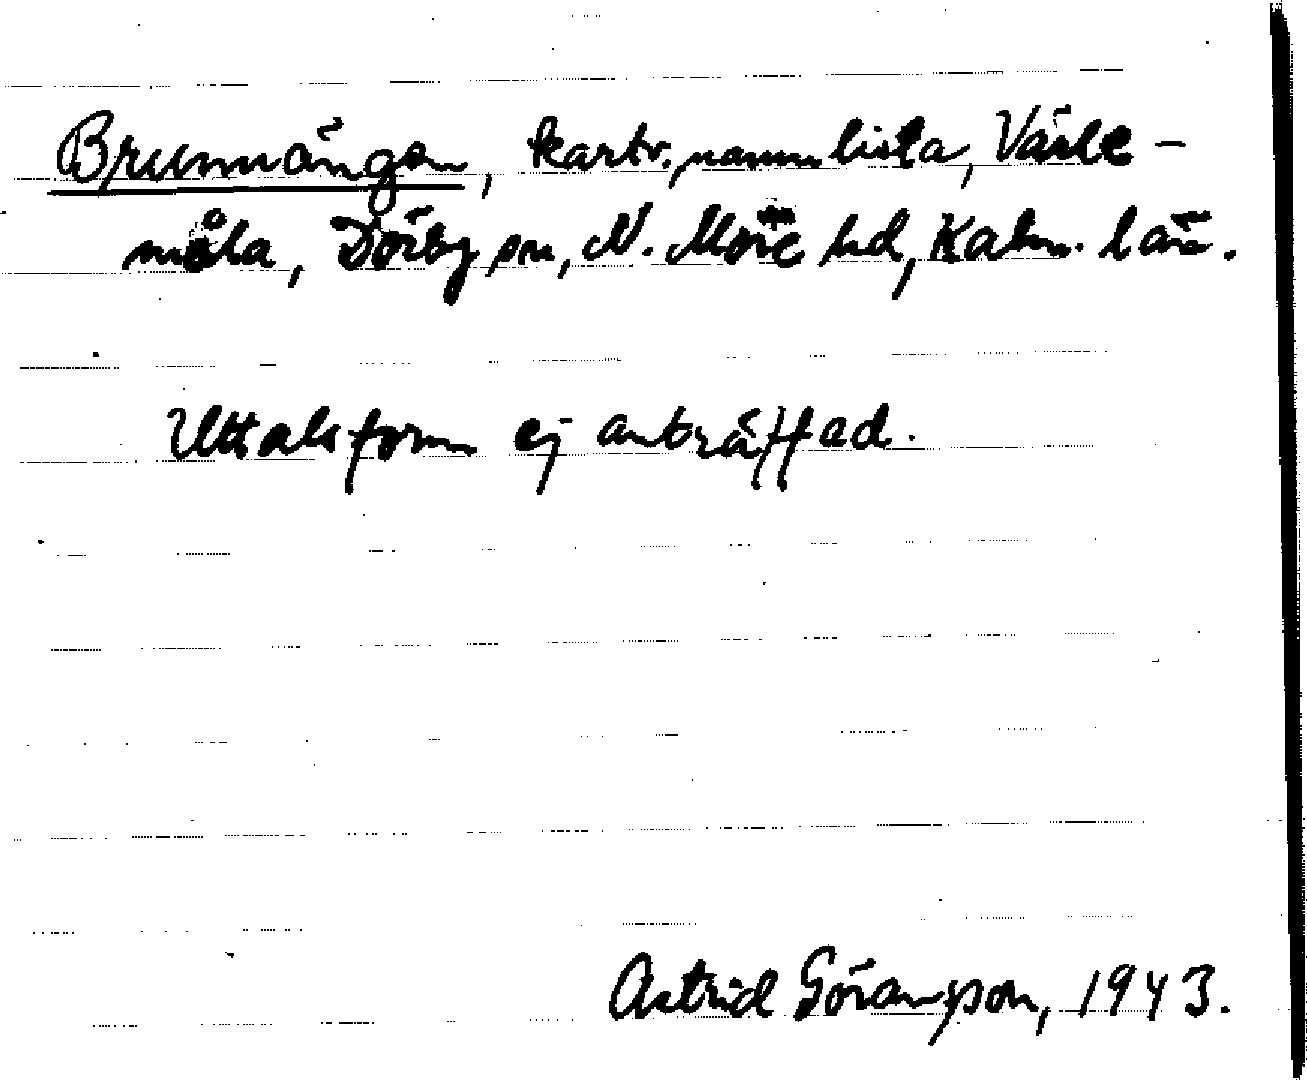 Brunnängen, kartv. namnlista, Värle-
måla, Dörby sn, N. Möre hd, Kalm. län.
Uttalsform ej anträffad.
Astrid Göransson, 1943.